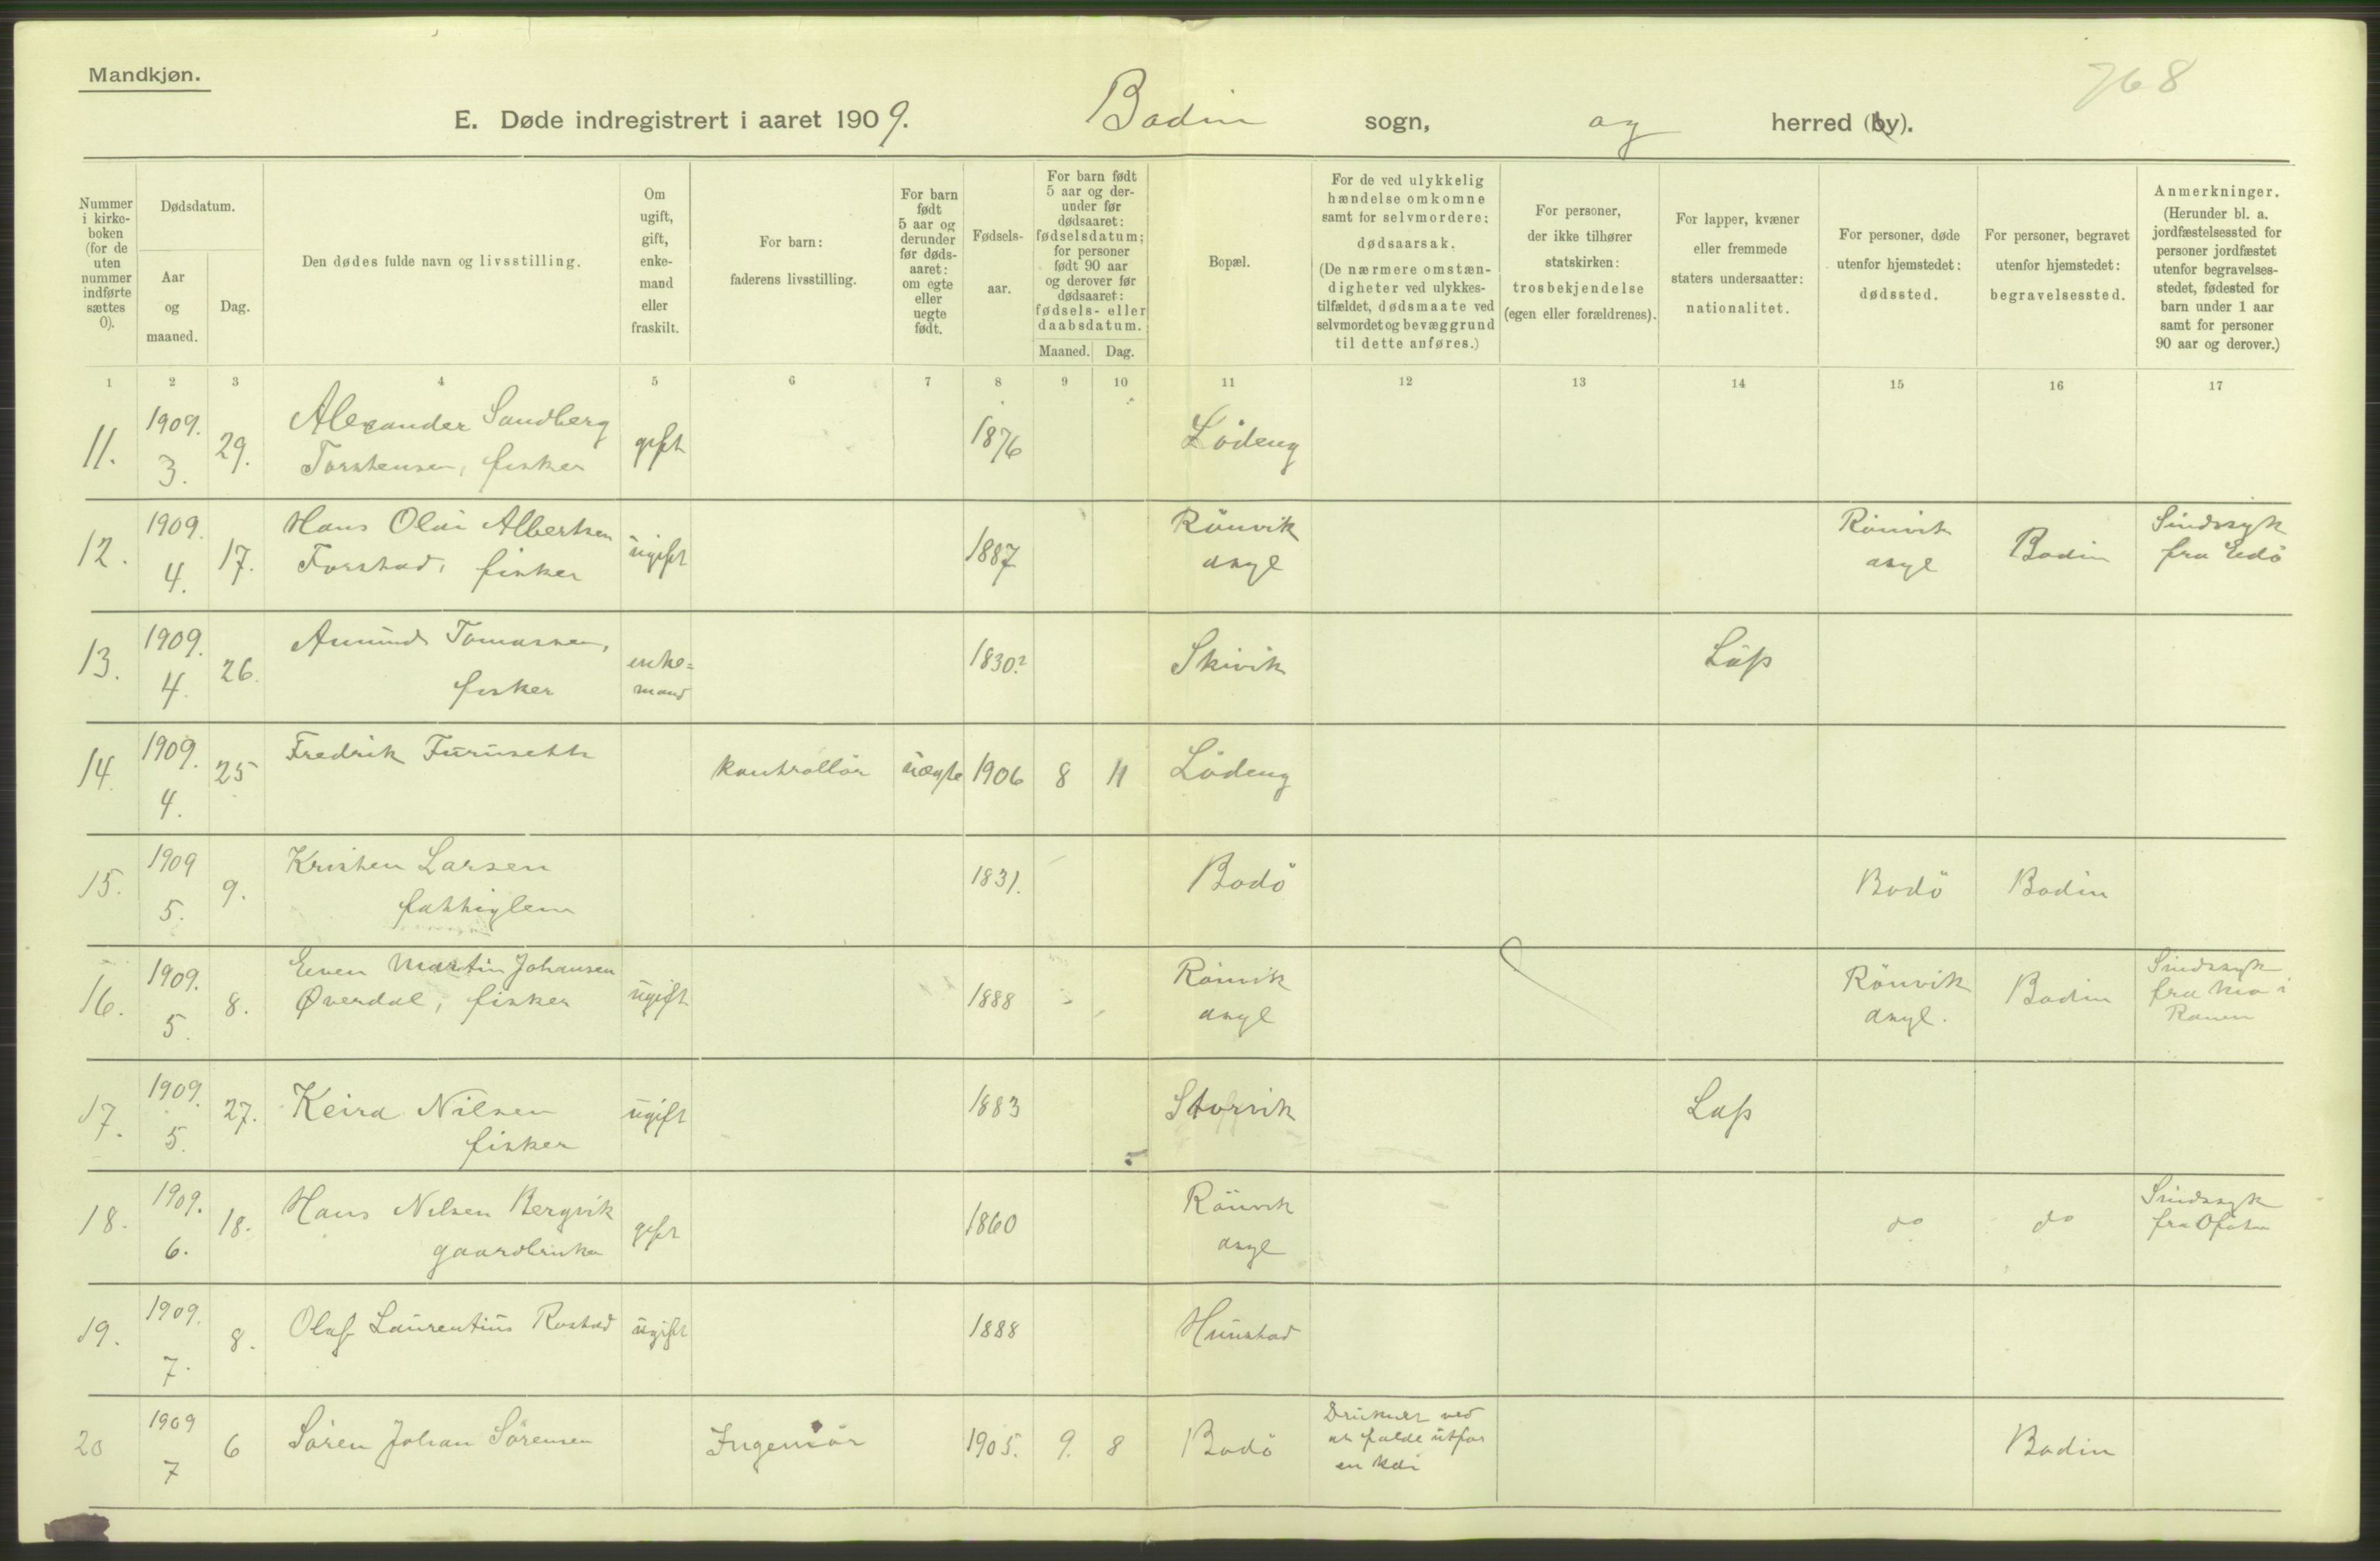 Mandkjøn.
768
E. Døde indregistrert i aaret 1909. Bodin sogn, og herred (by).
Nummer i kirkeboken (for de uten nummer indførte sættes 0).
Dødsdatum.
Aar og maaned.
Dag.
Den dødes fulde navn og livsstilling.
Om ugift, gift, enkemand eller fraskilt.
For barn: faderens livsstilling.
For barn født 5 aar og derunder før dødsaaret: om egte eller uegte født.
Fødselsaar.
For barn født 5 aar og derunder før dødsaaret: fødselsdatum; for personer født 90 aar og derover før dødsaaret: fødsels- eller daabsdatum.
Maaned. Dag.
Bopæl.
For de ved ulykkelig hændelse omkomne samt for selvmordere: dødsaarsak. (De nærmere omstændigheter ved ulykkestilfældet, dødsmaate ved selvmordet og bevæggrund til dette anføres.)
For personer, der ikke tilhører statskirken: trosbekjendelse (egen eller forældrenes).
For lapper, kvæner eller fremmede staters undersaatter: nationalitet.
For personer, døde utenfor hjemstedet: dødssted.
For personer, begravet utenfor hjemstedet: begravelsessted.
Anmerkninger. (Herunder bl. a. jordfæstelsessted for personer jordfæstet utenfor begravelsesstedet, fødested for barn under 1 aar samt for personer 90 aar og derover.)
1 2 3 4 5 6 7 8 9 10 11 12 13 14 15 16 17
11. 1909. 3. 29. Alexander Sandberg Torstensen, fisker gift 1876 Lødeng
12. 1909. 4. 17. Hans Olai Albertsen Forstad, fisker ugift 1887 Rönvik asyl Rönvik asyl Bodin Sindssyk fra Edö
13. 1909. 4. 26. Amund Tomassen, fisker enke=mand 1830? Skivik Lap
14. 1909. 4. 25 Fredrik Furuseth kontrollör uægte 1906 8 11 Lödeng
15. 1909 5. 9. Kristen Larsen fattiglem 1831. Bodö Bodö Bodin
16. 1909. 5. 8. Even Martin Johansen Øverdal, fisker ugift 1888 Rönvik asyl Rönvik asyl. Bodin Sindssyk fra Mo i Ranen
17. 1909. 5. 27. Keira Nilsen fisker ugift 1883 Storvik Lap
18. 1909. 6. 18. Hans Nilsen Bergvik gaardbruker gift 1860 Rönvik asyl do do Sindssyk fra Ofoten
19. 1909. 7. 8. Olaf Laurentius Rostad ugift 1888 Hunstad
20 1909 7 6 Sören Johan Sörensen Ingeniör 1905. 9. 8 Bodö Druknet ved at falde utfor en kai Bodin